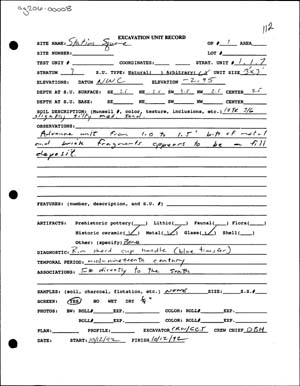 ag206-00008
112
EXCAVATION UNIT RECORD
SITE NAME: Station Square OF 1 AREA
SITE NUMBER: LOT #
TEST UNIT # COORDINATES: STRAT. UNIT # 1.1.7
STRATUM S.U. TYPE: Natural( ) Arbitrary( ) UNIT SIZE 3'x3'
ELEVATIONS: DATUM NWC ELEVATION -2.95
DEPTH AT S.U. SURFACE: SE NE SW NW CENTER
DEPTH AT S.U. BASE: SE NE SW NW CENTER
SOIL DESCRIPTION: (Munsell #, color, texture, inclusions, etc.) 10YR 3/6
slightly silty med. sand
OBSERVATIONS:
Advance unit from 1.0 to 1.5' bits of metal
and brick fragments appears to be a fill
deposit.
FEATURES: (number, description, and S.U. #)
ARTIFACTS: Prehistoric pottery( ) Lithic( ) Faunal( ) Flora( )
Historic ceramic(✓) Metal(✓) Glass(✓) Shell( )
Other: (specify) Bone
DIAGNOSTIC: Rim sherd cup handle (blue transfer)
TEMPORAL PERIOD: mid-nineteenth century
ASSOCIATIONS: directly to the South
SAMPLES: (soil, charcoal, flotation, etc.) None SIZE: S.S.#
SCREEN: YES NO WET DRY 1/4"
PHOTOS: BW: ROLL# EXP. COLOR: ROLL# EXP.
BW: ROLL# EXP. COLOR: ROLL# EXP.
PLAN: PROFILE: EXCAVATOR CREW CHIEF DBH
DATE: START: 10/12/92 FINISH 10/12/92